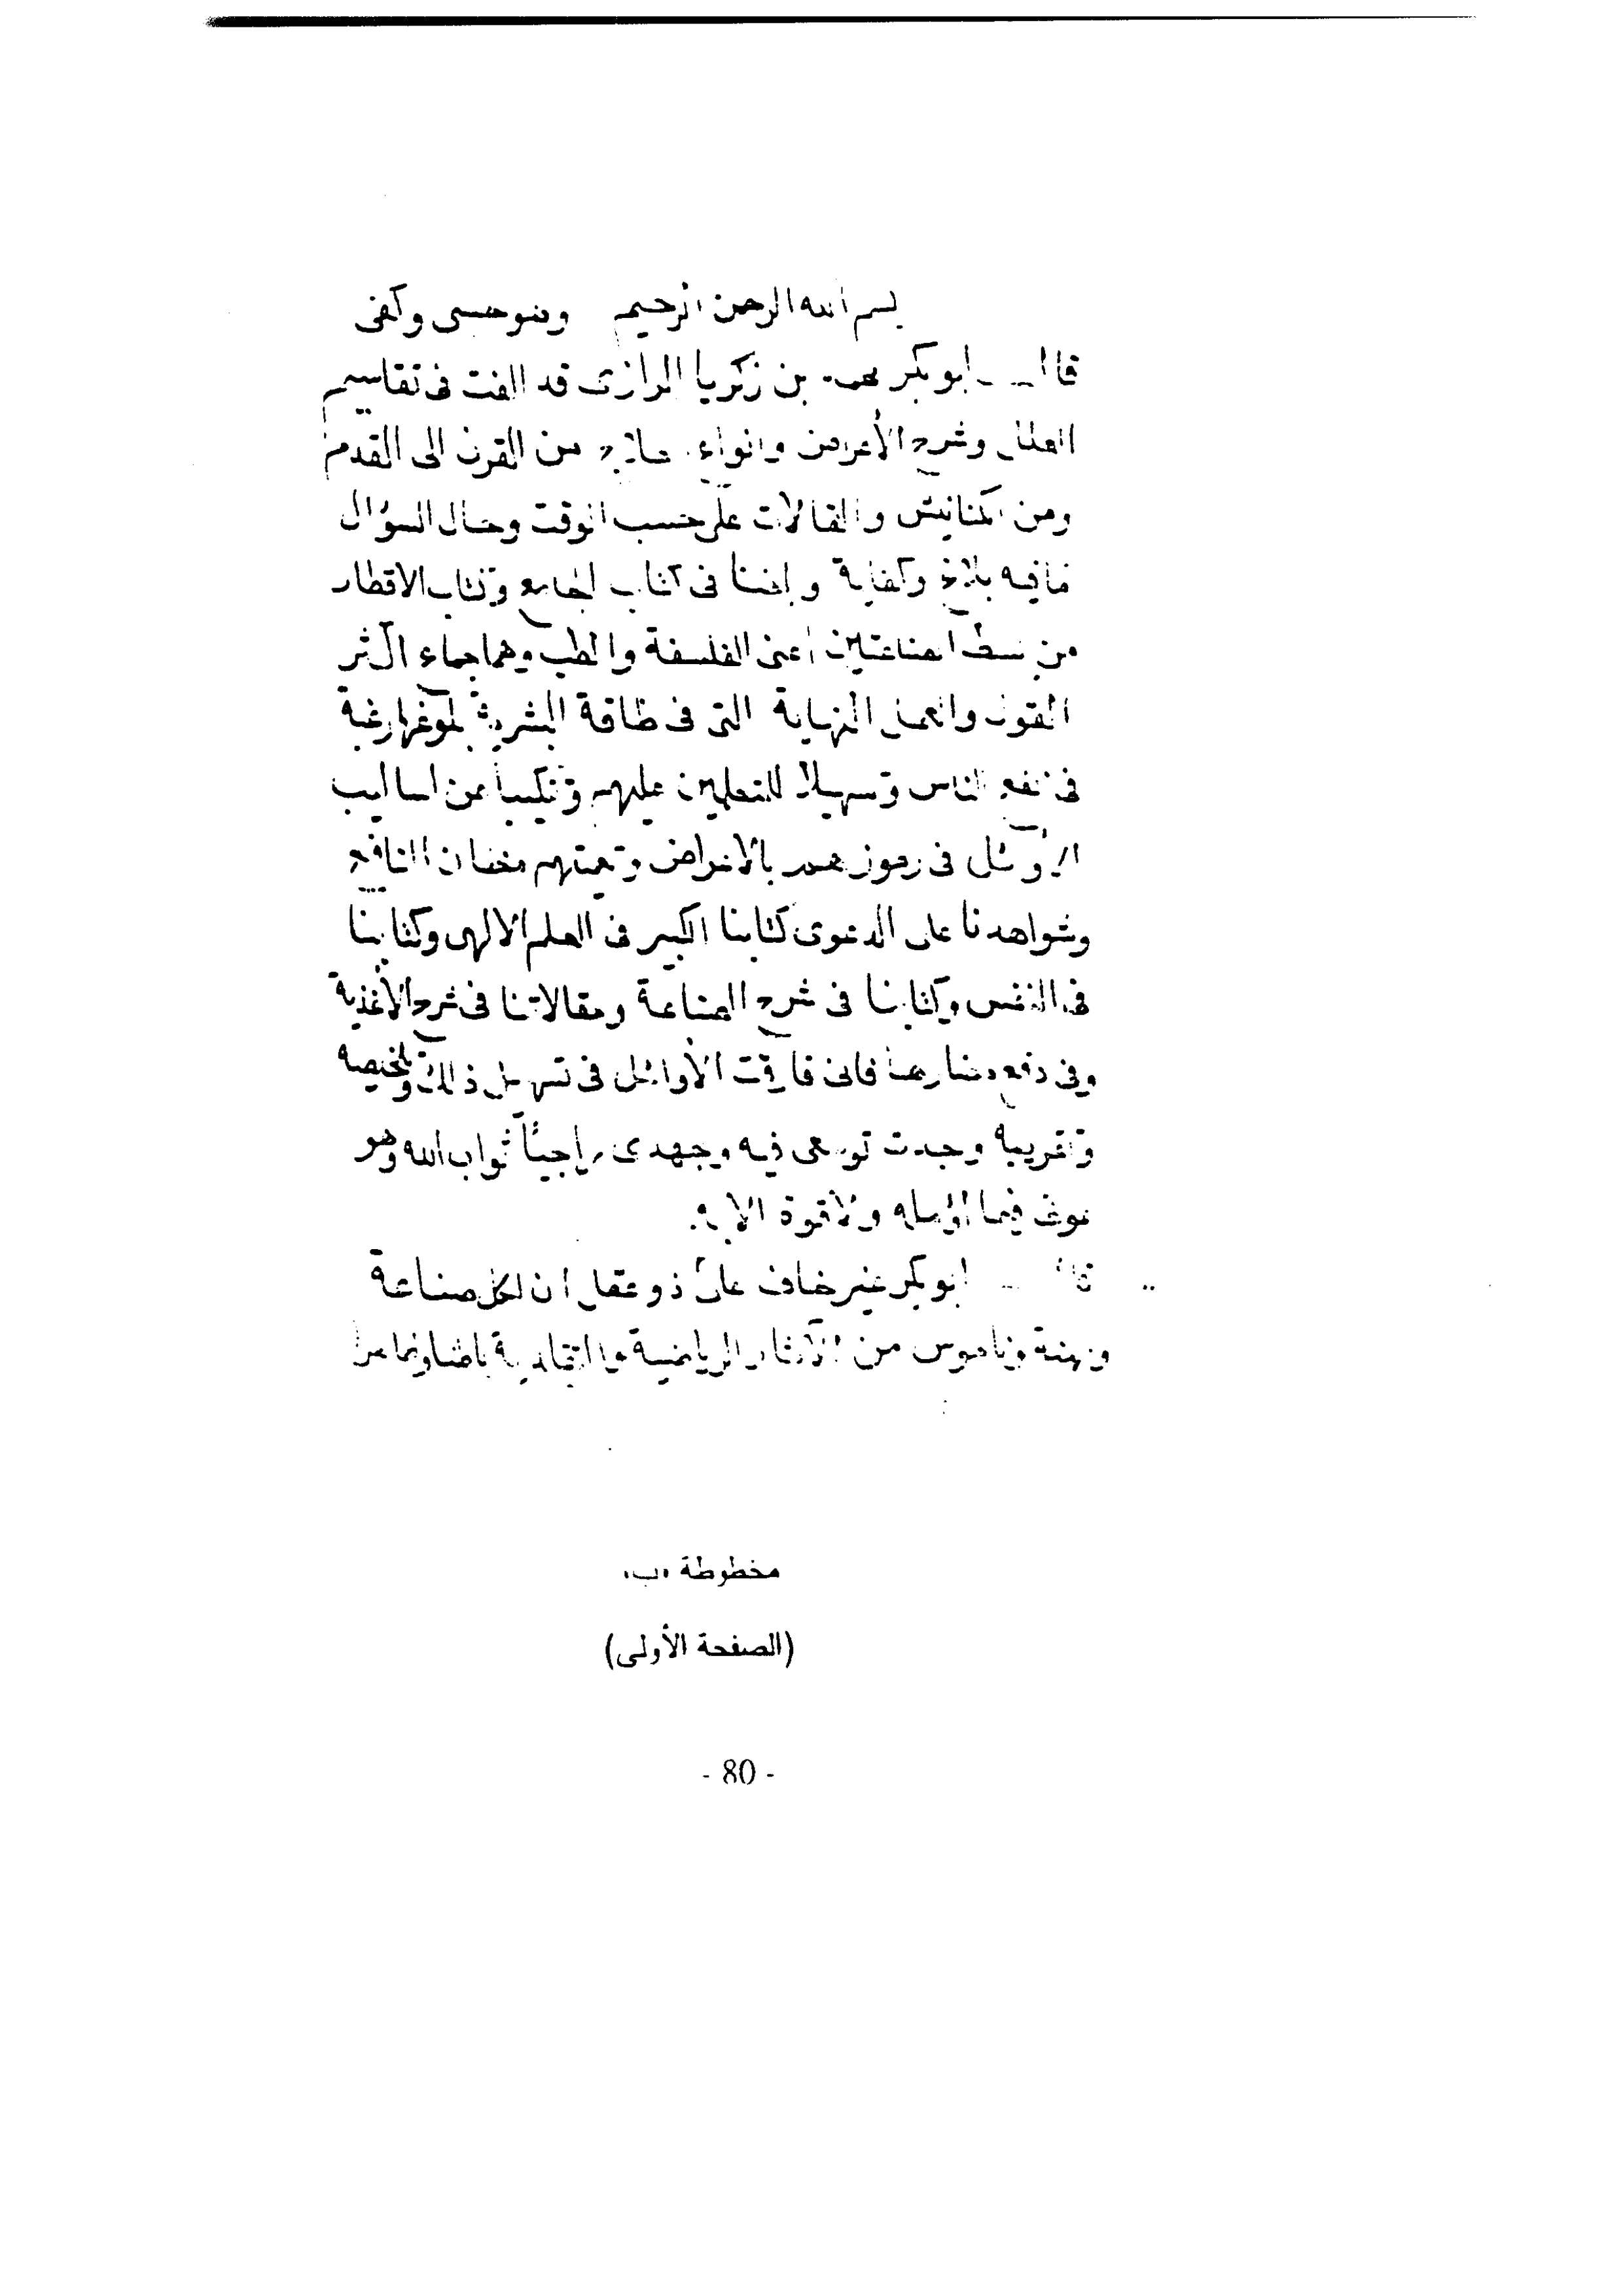 بسم الله الرحمن الرحيم وهو حسبى وكفى
قال ابو بكر محمد بن زكريا الرازى قد الفت فى تقاسيم
العلل وشرح الأعراض وانواع علاج من القرن الى القدم
ومن الكنانيش والمقالات على حسب الوقت وحال السؤال
مافيه بلاغ وكفاية وبلغنا فى كتاب الجامع وكتاب الاقطار
من بسط الصناعتين أعنى الفلسفة والطب وهما جماء
القول والعمل النهاية التى فى طاقة البشرية بلوغها رغبة
فى نفع الناس وتسهيلا للمتعلمين عليهم وتنكيبا عن اساليب
الأوئل فى رموز هم بالاغراض
وشواهدنا على الدعوى كتابنا الكبير فى العلم الالهى وكتابنا
فى النفس وكتابنا فى شرح الصناعة ومقالاتنا فى شرح الأغذية
وفى دفع مضارها فانى فارقت الأوائل فى تسهيل ذلك وتلخيصه
وتقريبه وجدت توسعى فيه وجهدى راجيئا ثواب الله وهو
عونى فيما اؤمله ولا قوة الا به.
قال ابو بكر غير خاف على ذو عقل ان لكل صناعة
ومهنة وناموس من الآثار الرياضية
مخطوطة «ب»
(الصفحة الأولى)
- 80 -